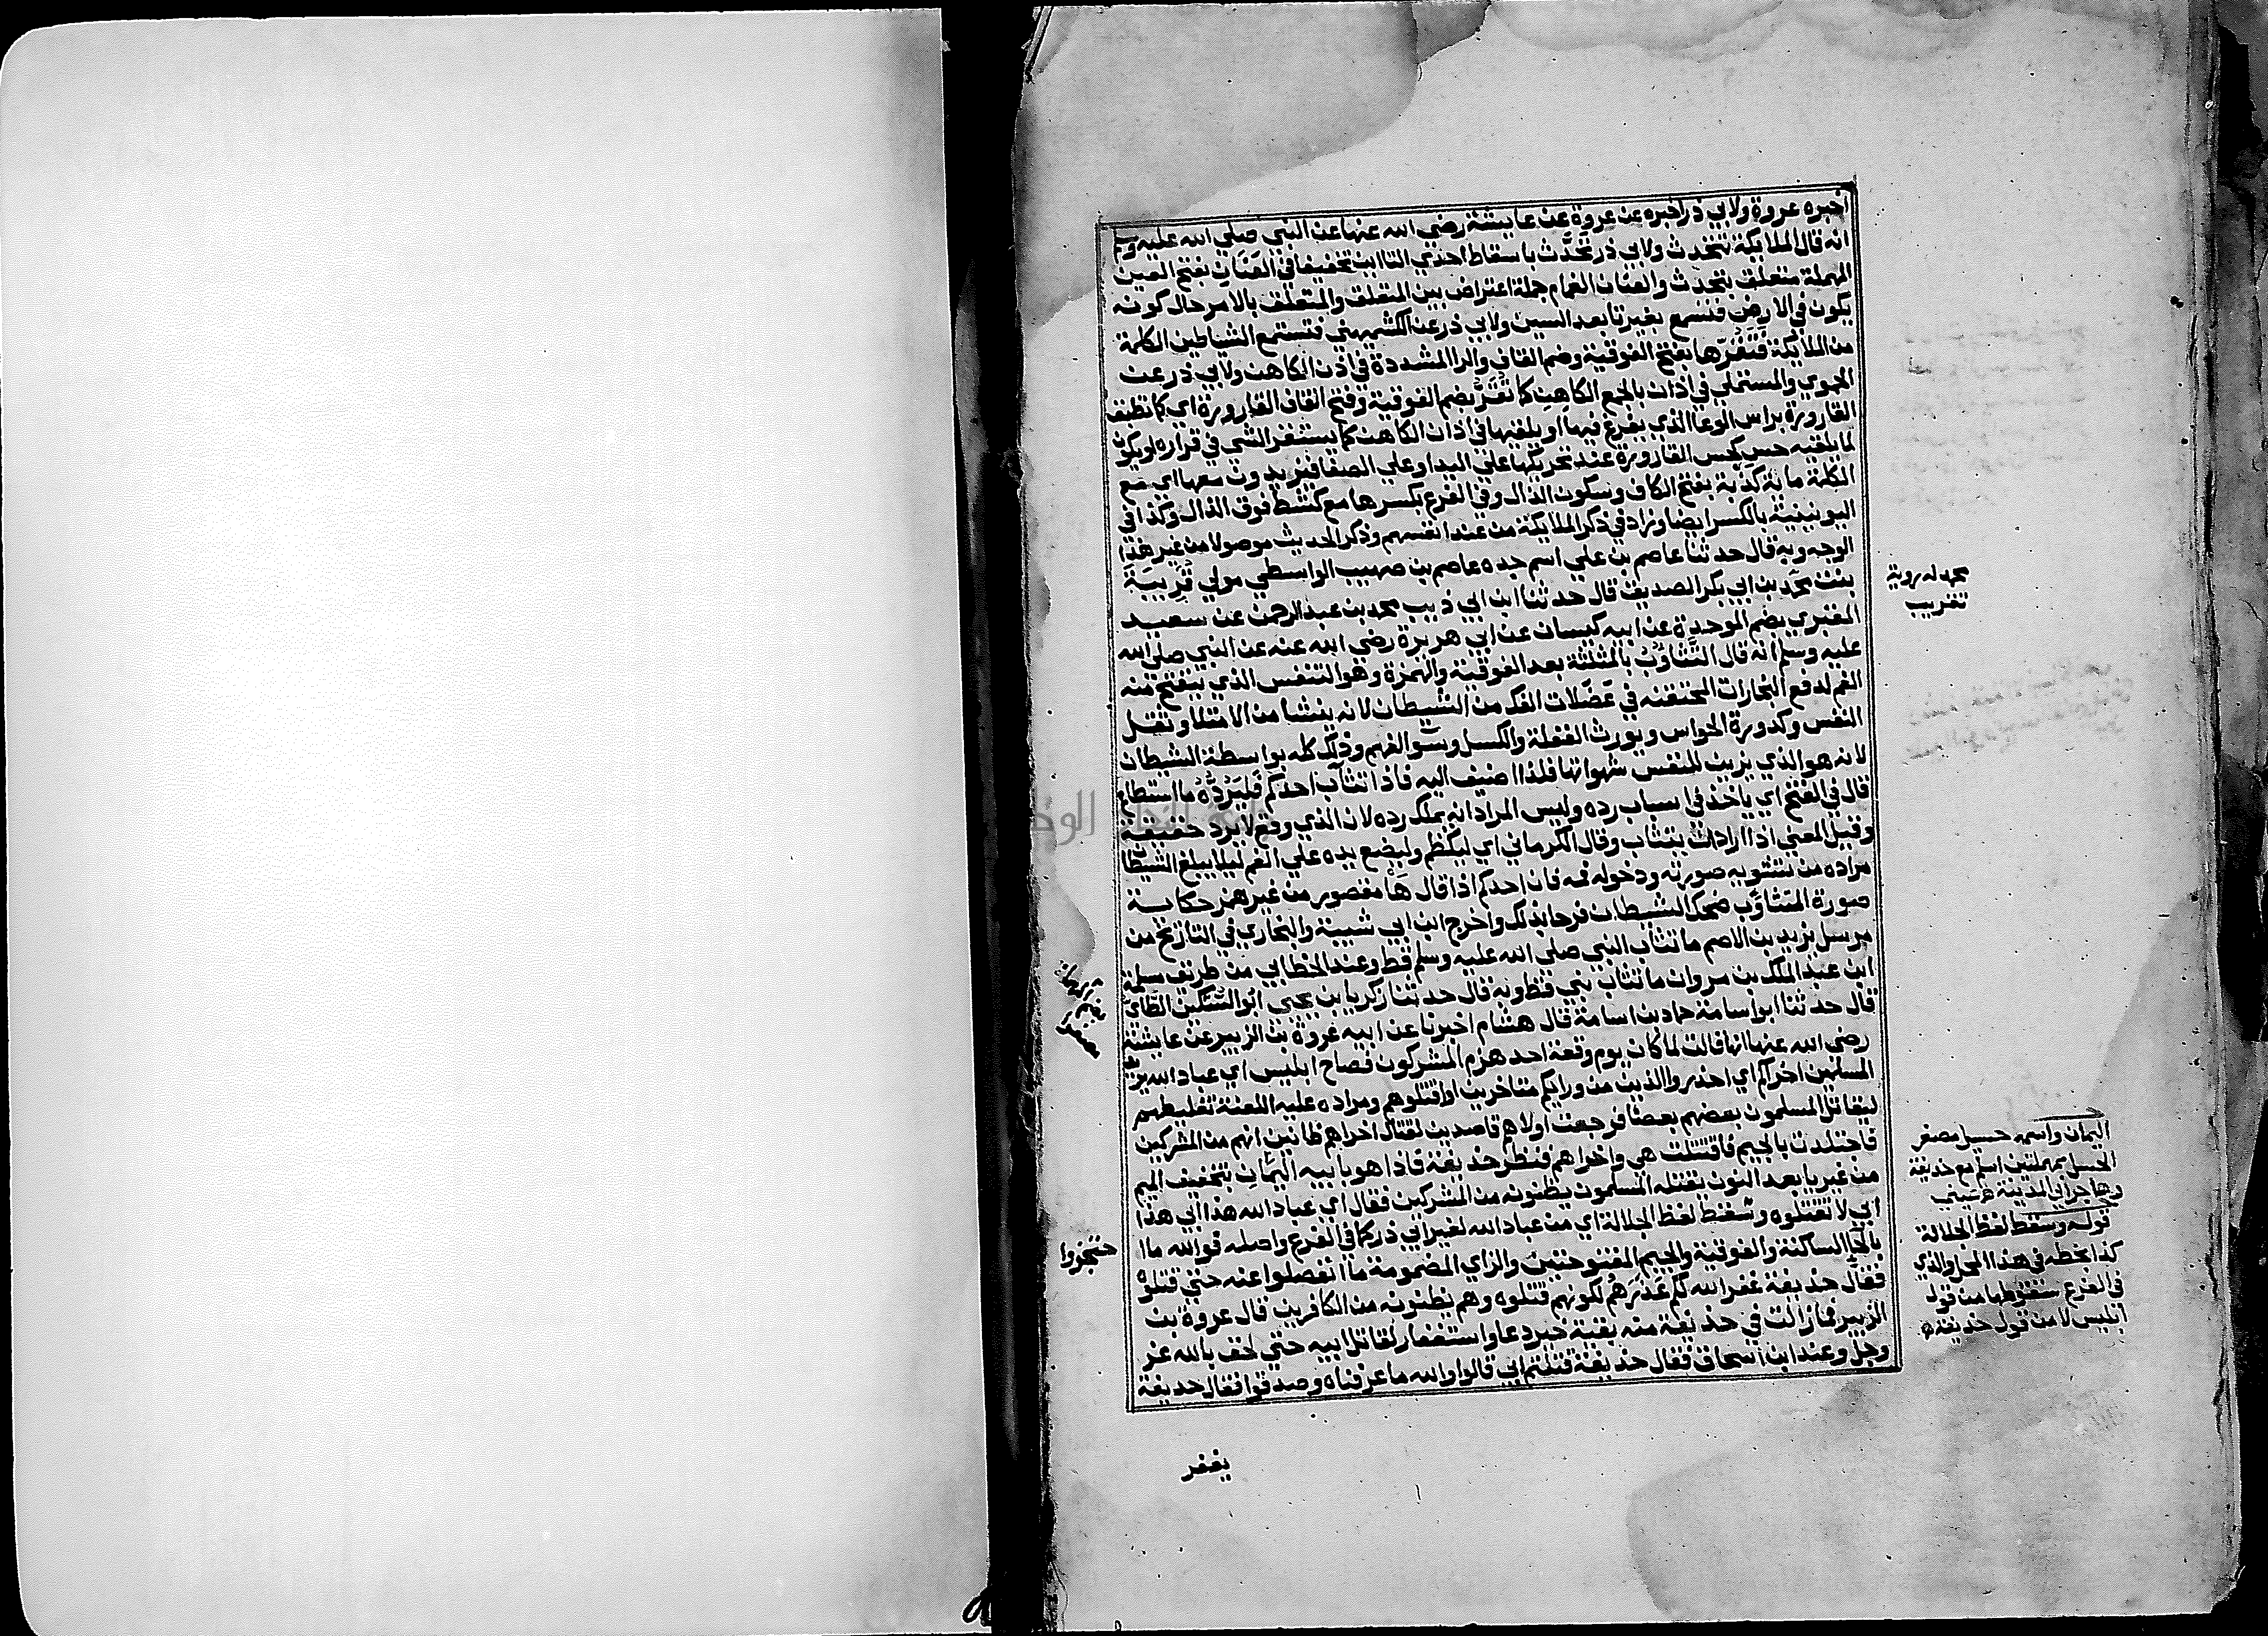 اخبره عروة ولابي ذر اخبره عن عروة عن عايشة رضي الله عنها عن النبي صلي الله عليه وسلم
انه قال الملايكة تتحدث ولابي ذر تحدث باسقاط احدي التاءين تخفيفا في العنان بفتح العين
المهملة متعلق بتحدث والعنان الغمام جملة اعتراض بين المتعلق والمتعلق بالامر حال كونه
يكون في الارض فتسمع بغير تا بعد السين ولابي ذر عن الكشميهني فتستمع الشياطين الكلمة
من الملايكة فتقرها بفتح الفوقية وضم القاف والرا المشددة في اذن الكاهن ولابي ذر عن
الحموي والمستملي في اذان بالجمع الكاهن كما تقر بضم الفوقية وفتح القاف القارورة اي كما تطبق
القارورة براس الوعا الذي يفرغ فيها او يلقيها في اذان الكاهن كما يستقر الشي في قراره او يكون
لما يلقيه حس كحس القارورة عند تحريكها علي اليد او علي الصفا فيزيدون معها اي مع
الكلمة ماية كذبة بفتح الكاف وسكون الذال وفي الفرع بكسرها مع كشط فوق الذال وكذا في
اليونينية بالكسر ايضا وزاد في ذكر الملايكة من عند انفسهم وذكر الحديث موصولا من غير هذا
الوجه وبه قال حدثنا عاصم بن علي اسم جده عاصم بن صهيب الواسطي مولي قريبة
بنت محمد بن ابي بكر الصديق قال حدثنا ابن ابي ذيب محمد بن عبد الرحمن عن سعيد
المقبري بضم الموحدة عن ابيه كيسان عن ابي هريرة رضي الله عنه عن النبي صلي الله
عليه وسلم انه قال التثاوب بالمثلثة بعد الفوقية والهمزة وهو التنفس الذي ينفتح منه
الفم لدفع البخارات المحتقنه في عضلات الفك من الشيطان لانه ينشا من الامتلا وثقل
النفس وكدورة الحواس ويورث الغفلة والكسل وسو الفهم وذلك كله بواسطة الشيطان
لانه هو الذي يزين للنفس شهواتها فلذا اضيف اليه فاذا تثاب احدكم فليرده ما استطاع
قال في الفتح اي ياخذ في اسباب رده وليس المراد انه يملك رده لان الذي وقع لا يرد حقيقة
وقيل المعني اذا اراد ان يتثاب وقال الكرماني اي ليكظم وليضع يده علي الفم ليلا يبلغ الشيطان
مراده من تشويه صورته ودخوله فمه فان احدكم اذا قال ها مقصور من غير همز حكاية
صورة المتثاوب ضحك الشيطان فرحا بذلك واخرج ابن ابي شيبة والبخاري في التاريخ من
مرسل يزيد بن الاصم ما تثاب النبي صلي الله عليه وسلم قط وعند الخطابي من طريق سلمة
ابن عبد الملك بن مروان ما تثاب نبي قط وبه قال حدثنا زكريا بن يحيي ابو السكين الطاي
قال حدثنا ابو اسامة حماد بن اسامة قال هشام اخبرنا عن ابيه عروة بن الزبير عن عايشة
رضي الله عنها انها قالت لما كان يوم وقعة احد هزم المشركون فصاح ابليس اي عباد الله يريد
المسلمين اخراكم اي احذروا الذين من ورايكم متاخرين او اقتلوهم ومراده عليه اللعنة تغليطهم
ليقاتل المسلمون بعضهم بعضا فرجعت اولاهم قاصدين لقتال اخراهم ظانين انهم من المشركين
فاجتلدت بالجيم فاقتتلت هي واخراهم فنظر حذيفة فاذا هو بابيه اليمان بتخفيف الميم
من غير يا بعد النون يقتله المسلمون يظنونه من المشركين فقال اي عباد الله هذا ابي هذا
ابي لا تقتلوه وسقط لفظ الجلالة اي من عباد الله لغير ابي ذر كما في الفرع واصله فوالله ما
بالحا الساكنة والفوقية والجيم المفتوحتين والزاي المضمومة ما انفصلوا عنه حتي قتلوه
فقال حذيفة غفر الله لكم عذرهم لكونهم قتلوه وهم يظنونه من الكافرين قال عروة بن
الزبير فما زالت في حذيفة منه بقية خير دعا واستغفار لقاتل ابيه حتي لحق بالله عز
وجل وعند ابن اسحاق فقال حذيفة قتلتم ابي قالوا والله ما عرفناه وصدقوا فقال حذيفة
يغفر
محمد له روية
تقريب
احتجزوا
اليمان واسمه حسيل مصغر
الحسل بمهملتين اسلم مع حذيفة
وهاجر الي المدينة عيني
قوله وسقط لفظ الجلالة
كذا بخطه في هذا المحل والذي
في الفرع سقوطها من قول
ابليس لا من قول حذيفة